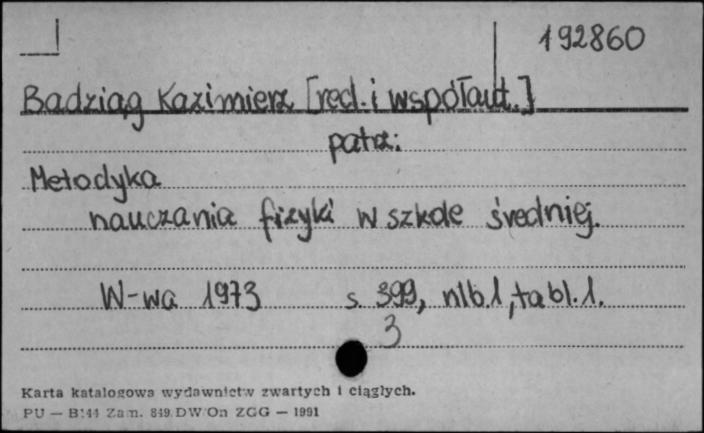 192860
Badziąg Kazimierz [red. i współaut.]
patrz:
Metodyka
nauczania fizyki w szkole średniej.
W-wa 1973 s. 399, nlb.1, tabl.1.
3
Karta katalogowa wydawnictw zwartych i ciągłych.
PU — B144 Zam. 849 DW/On ZGG — 1991